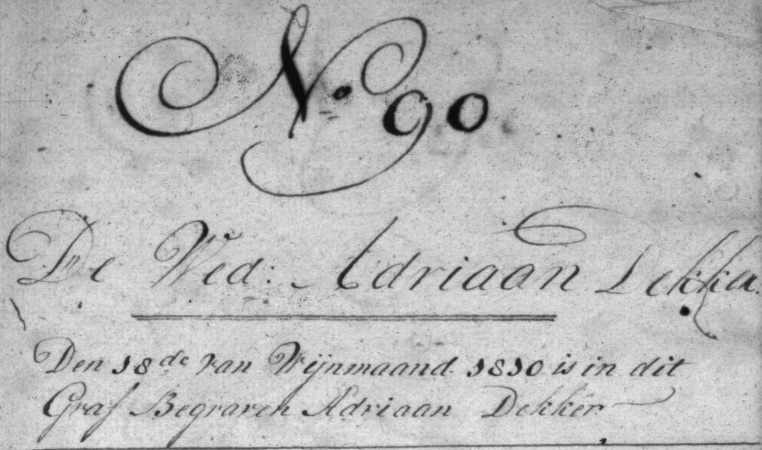 No. 90.
De Wed: Adriaan Dekker.
Den 18de van Wijnmaand 1810 is in dit
Graf Begraven Adriaan Dekker